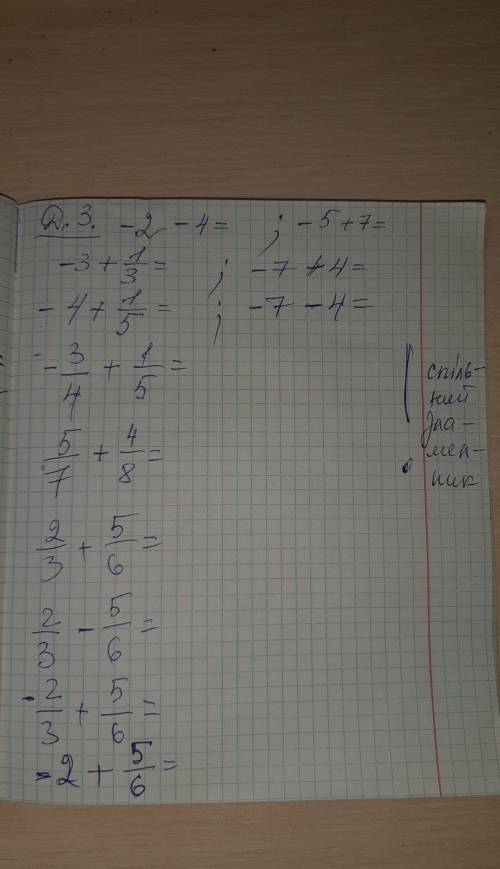 Д.З. -2 -4= ; -5+7=
-3+1/3= ; -7+4=
-4+1/5= ; -7-4=
-3/4+1/5=
5/7+4/8=
2/3+5/6=
2/3-5/6=
-2/3+5/6=
-2+5/6=
! спіль-
ний
зна-
мен-
ник